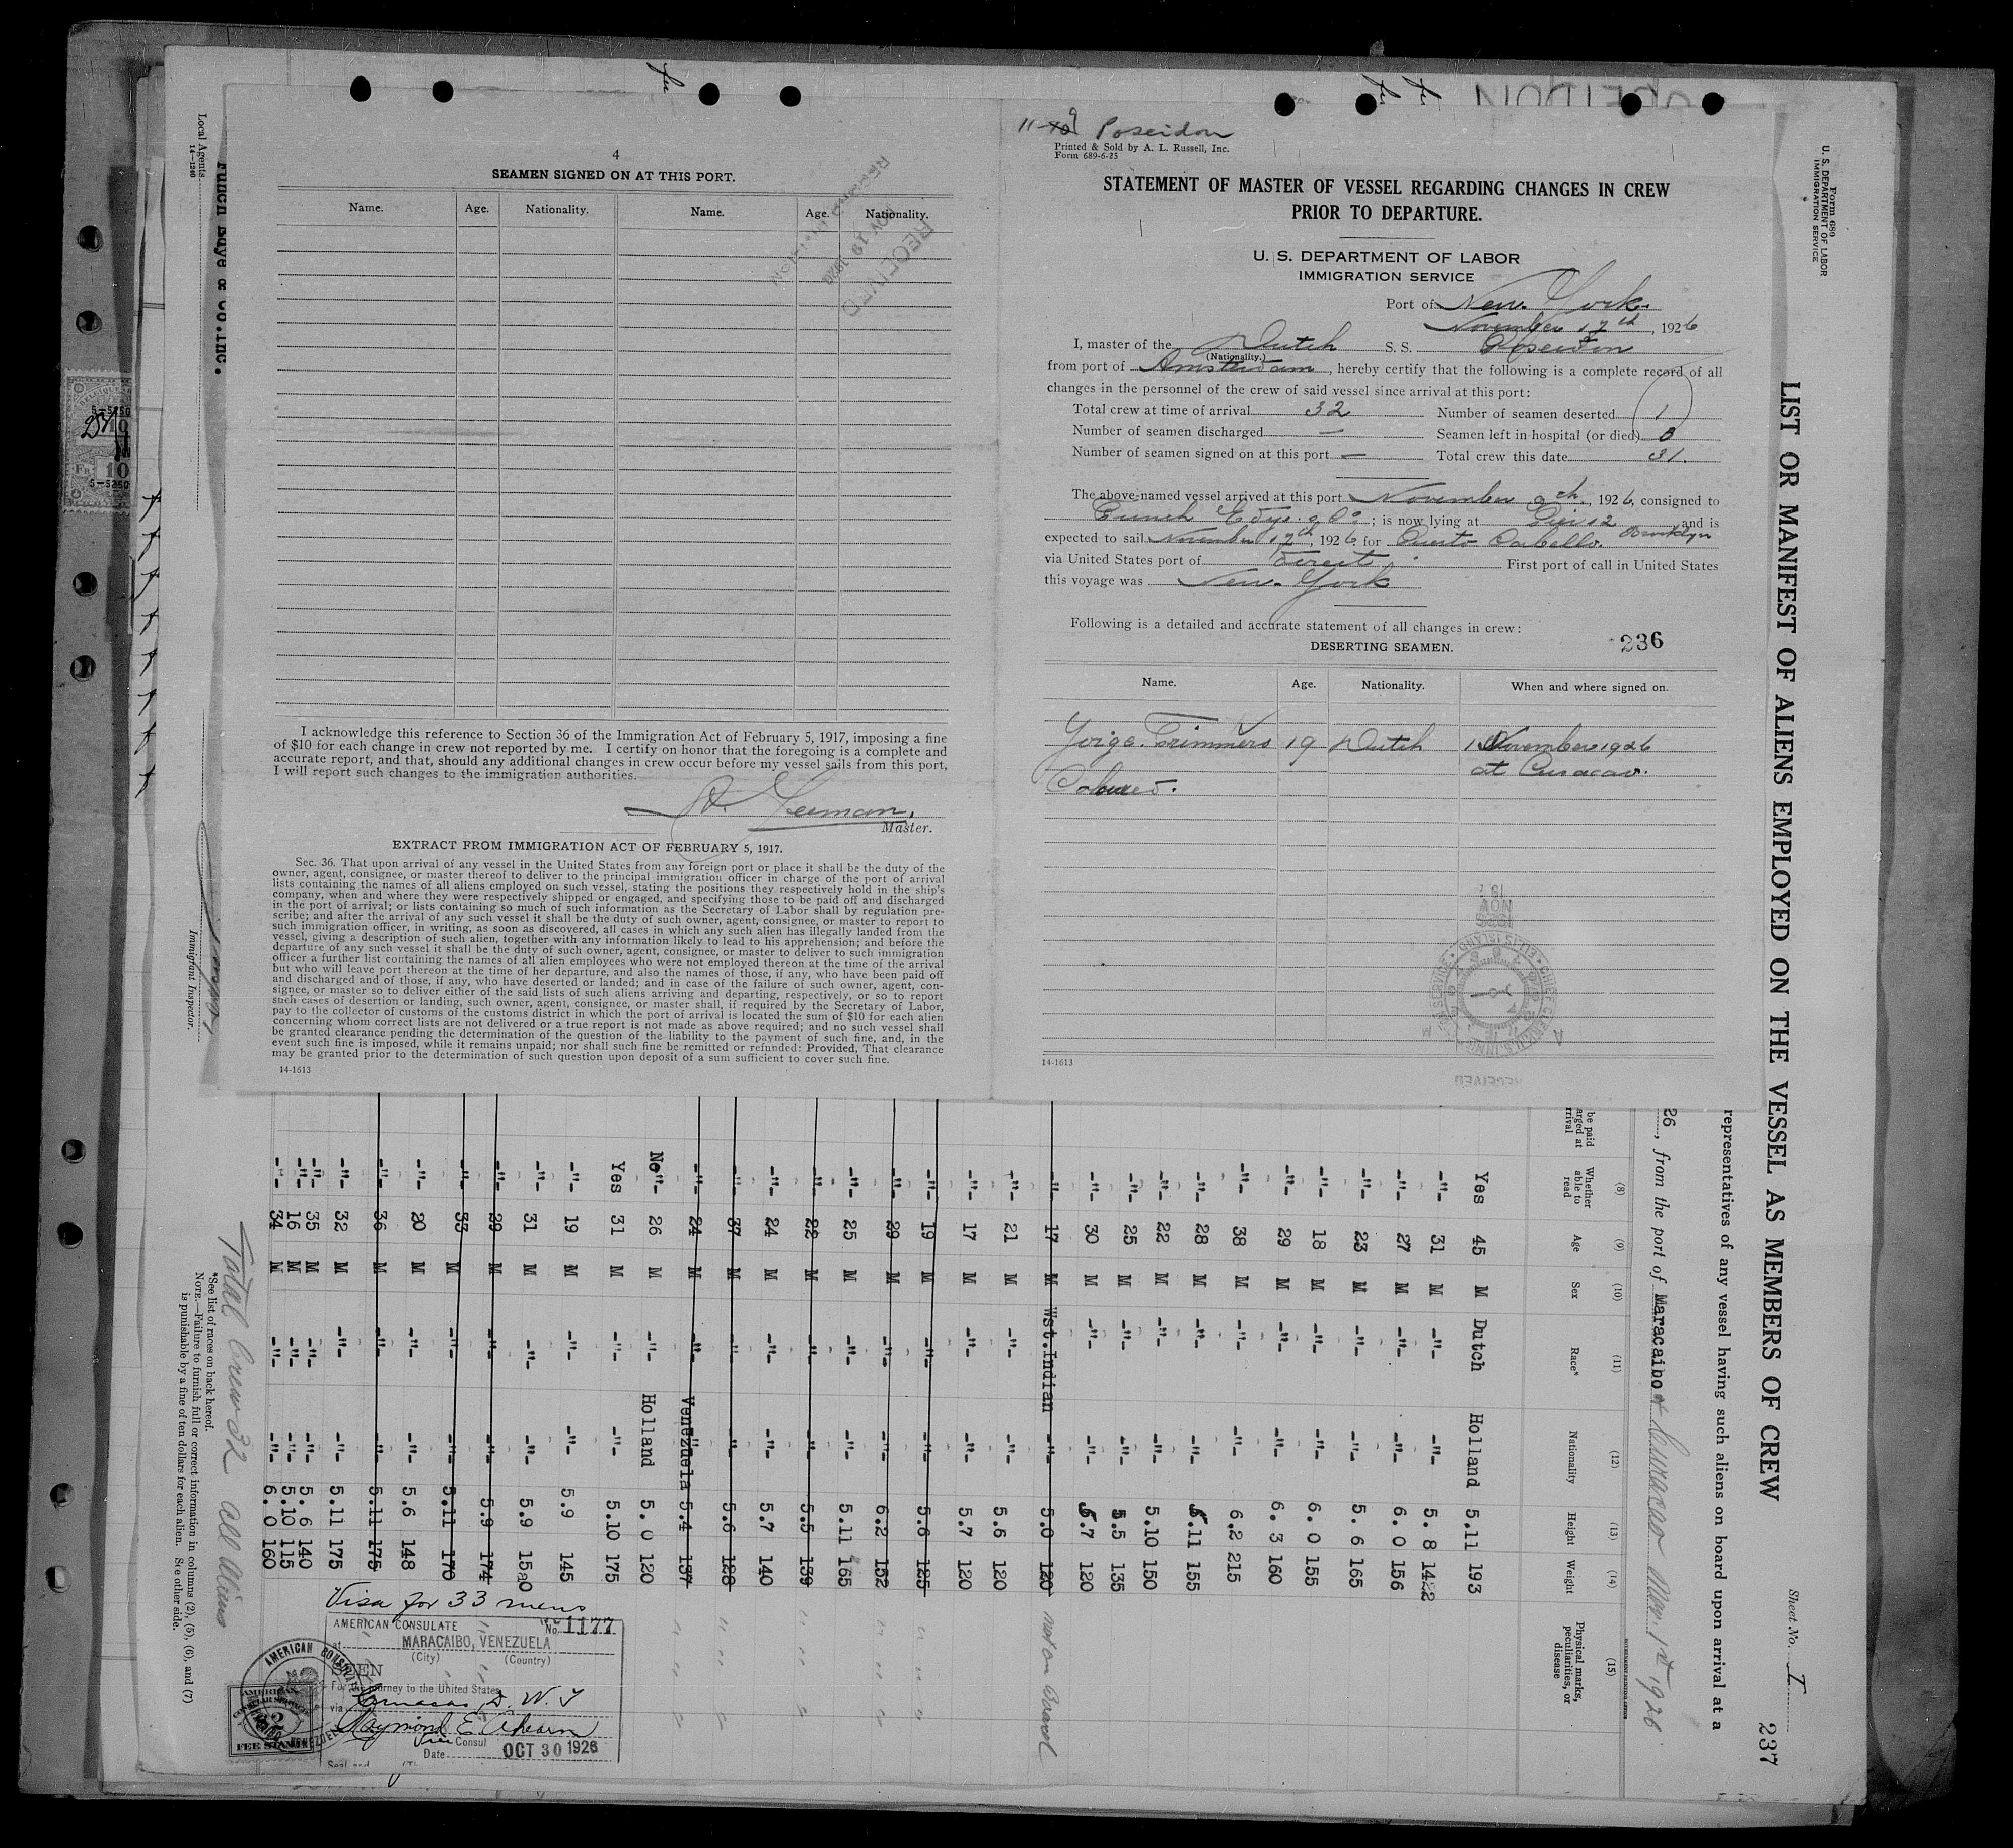 4
SEAMEN SIGNED ON AT THIS PORT.
Name. Age. Nationality. Name. Age. Nationality.
RECEIVED
NOV 19 1926
I acknowledge this reference to Section 36 of the Immigration Act of February 5, 1917, imposing a fine
of $10 for each change in crew not reported by me. I certify on honor that the foregoing is a complete and
accurate report, and that, should any additional changes in crew occur before my vessel sails from this port,
I will report such changes to the immigration authorities.
Master.
EXTRACT FROM IMMIGRATION ACT OF FEBRUARY 5, 1917.
Sec. 36. That upon arrival of any vessel in the United States from any foreign port or place it shall be the duty of the
owner, agent, consignee, or master thereof to deliver to the principal immigration officer in charge of the port of arrival
lists containing the names of all aliens employed on such vessel, stating the positions they respectively hold in the ship's
company, when and where they were respectively shipped or engaged, and specifying those to be paid off and discharged
in the port of arrival; or lists containing so much of such information as the Secretary of Labor shall by regulation pre-
scribe; and after the arrival of any such vessel it shall be the duty of such owner, agent, consignee, or master to report to
such immigration officer, in writing, as soon as discovered, all cases in which any such alien has illegally landed from the
vessel, giving a description of such alien, together with any information likely to lead to his apprehension; and before the
departure of any such vessel it shall be the duty of such owner, agent, consignee, or master to deliver to such immigration
officer a further list containing the names of all alien employees who were not employed thereon at the time of the arrival
but who will leave port thereon at the time of her departure, and also the names of those, if any, who have been paid off
and discharged and of those, if any, who have deserted or landed; and in case of the failure of such owner, agent, con-
signee, or master so to deliver either of the said lists of such aliens arriving and departing, respectively, or so to report
such cases of desertion or landing, such owner, agent, consignee, or master shall, if required by the Secretary of Labor,
pay to the collector of customs of the customs district in which the port of arrival is located the sum of $10 for each alien
concerning whom correct lists are not delivered or a true report is not made as above required; and no such vessel shall
be granted clearance pending the determination of the question of the liability to the payment of such fine, and, in the
event such fine is imposed, while it remains unpaid; nor shall such fine be remitted or refunded: Provided, That clearance
may be granted prior to the determination of such question upon deposit of a sum sufficient to cover such fine.
14-1613
Poseidon
Printed & Sold by A. L. Russell, Inc.
Form 689-6-25
STATEMENT OF MASTER OF VESSEL REGARDING CHANGES IN CREW
PRIOR TO DEPARTURE.
U. S. DEPARTMENT OF LABOR
IMMIGRATION SERVICE
Port of New York
November 17th, 1926
I, master of the Dutch S. S. Poseidon
(Nationality.)
from port of Amsterdam, hereby certify that the following is a complete record of all
changes in the personnel of the crew of said vessel since arrival at this port:
Total crew at time of arrival 32 Number of seamen deserted 1
Number of seamen discharged — Seamen left in hospital (or died) 0
Number of seamen signed on at this port — Total crew this date 31.
The above-named vessel arrived at this port November 9th, 1926, consigned to
Funch Edye & Co; is now lying at Pier 12 and is
Brooklyn
expected to sail November 17th, 1926 for Puerto Cabello.
via United States port of direct First port of call in United States
this voyage was New York
Following is a detailed and accurate statement of all changes in crew:
236
DESERTING SEAMEN.
Name. Age. Nationality. When and where signed on.
19 Dutch 1 November 1926
Coloured. at Curacao.
14-1613
RECEIVED
Form 689
U. S. DEPARTMENT OF LABOR
IMMIGRATION SERVICE
LIST OR MANIFEST OF ALIENS EMPLOYED ON THE VESSEL AS MEMBERS OF CREW
Sheet No. I
237
representatives of any vessel having such aliens on board upon arrival at a
26, from the port of Maracaibo & Curacao Nov. 1st 1926
(8) Whether able to read (9) Age (10) Sex (11) Race* (12) Nationality (13) Height (14) Weight (15) Physical marks, peculiarities, or disease
Yes 45 M Dutch Holland 5.11 193
-"- 31 M -"- -"- 5. 8 142
-"- 27 M -"- -"- 6. 0 156
-"- 23 M -"- -"- 5. 6 165
-"- 18 M -"- -"- 6. 0 155
-"- 29 M -"- -"- 6. 3 160
-"- 38 M -"- -"- 6.2 215
-"- 28 M -"- -"- 5.11 155
-"- 22 M -"- -"- 5.10 150
-"- 25 M -"- -"- 5.5 135
-"- 30 M -"- -"- 5.7 120
-"- 17 M Wst.Indian -"- 5.0 120 not on board
-"- 21 M -"- -"- 5.6 120
-"- 17 M -"- -"- 5.7 120
-"- 19 M -"- -"- 5.6 125
-"- 29 M -"- -"- 6.2 152
-"- 25 M -"- -"- 5.11 165
-"- 22 M -"- -"- 5.5 139
-"- 24 M -"- -"- 5.7 140
-"- 37 M -"- -"- 5.6 128
-"- 24 M -"- Venezuela 5.4 137
No"- 26 M -"- Holland 5. 0 120
Yes 31 M -"- -"- 5.10 175
-"- 19 M -"- -"- 5.9 145
-"- 31 M -"- -"- 5.9 150
-"- 29 M -"- -"- 5.9 174
-"- 33 M -"- -"- 5.11 170
-"- 20 M -"- -"- 5.6 148
-"- 36 M -"- -"- 5.11 175
-"- 32 M -"- -"- 5.11 175
-"- 35 M -"- -"- 5. 6 140
-"- 16 M -"- -"- 5.10 115
-"- 34 M -"- -"- 6. 0 160
Total Crew 32 all Aliens
*See list of races on back hereof.
NOTE.—Failure to furnish full or correct information in columns (2), (5), (6), and (7)
is punishable by a fine of ten dollars for each alien. See other side.
Visa for 33 mens
AMERICAN CONSULATE No. 1177
at MARACAIBO, VENEZUELA
(City) (Country)
SEEN
For the journey to the United States
via Curacao, D. W. I
Raymond E. Ahearn
Vice Consul
Date OCT 30 1926
AMERICAN CONSULAR SERVICE
2
FEE STAMP
Local Agents
14-1240
Funch Edye & Co.Inc.
Immigrant Inspector.